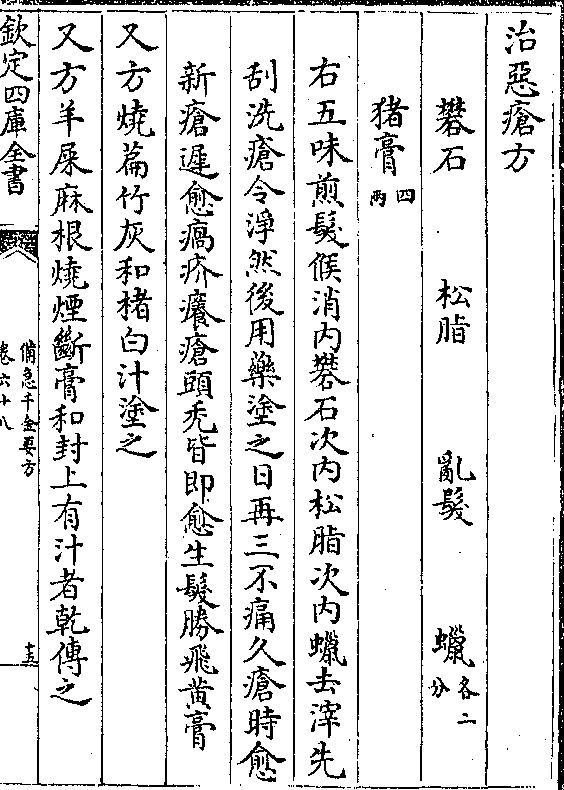 治惡瘡方
礬石　松脂　亂髮　蠟各二分
猪膏四兩
右五味煎髮候消内礬石次内松脂次内蠟去滓先
刮洗瘡令淨然後用藥塗之日再三不痛久瘡時愈
新瘡遲愈瘑疥癢瘡頭禿皆即愈生髮勝飛黄膏
又方燒萹竹灰和楮白汁塗之
又方羊屎麻根燒煙斷膏和封上有汁者乾傅之
欽定四庫全書
備急千金要方
卷六十八